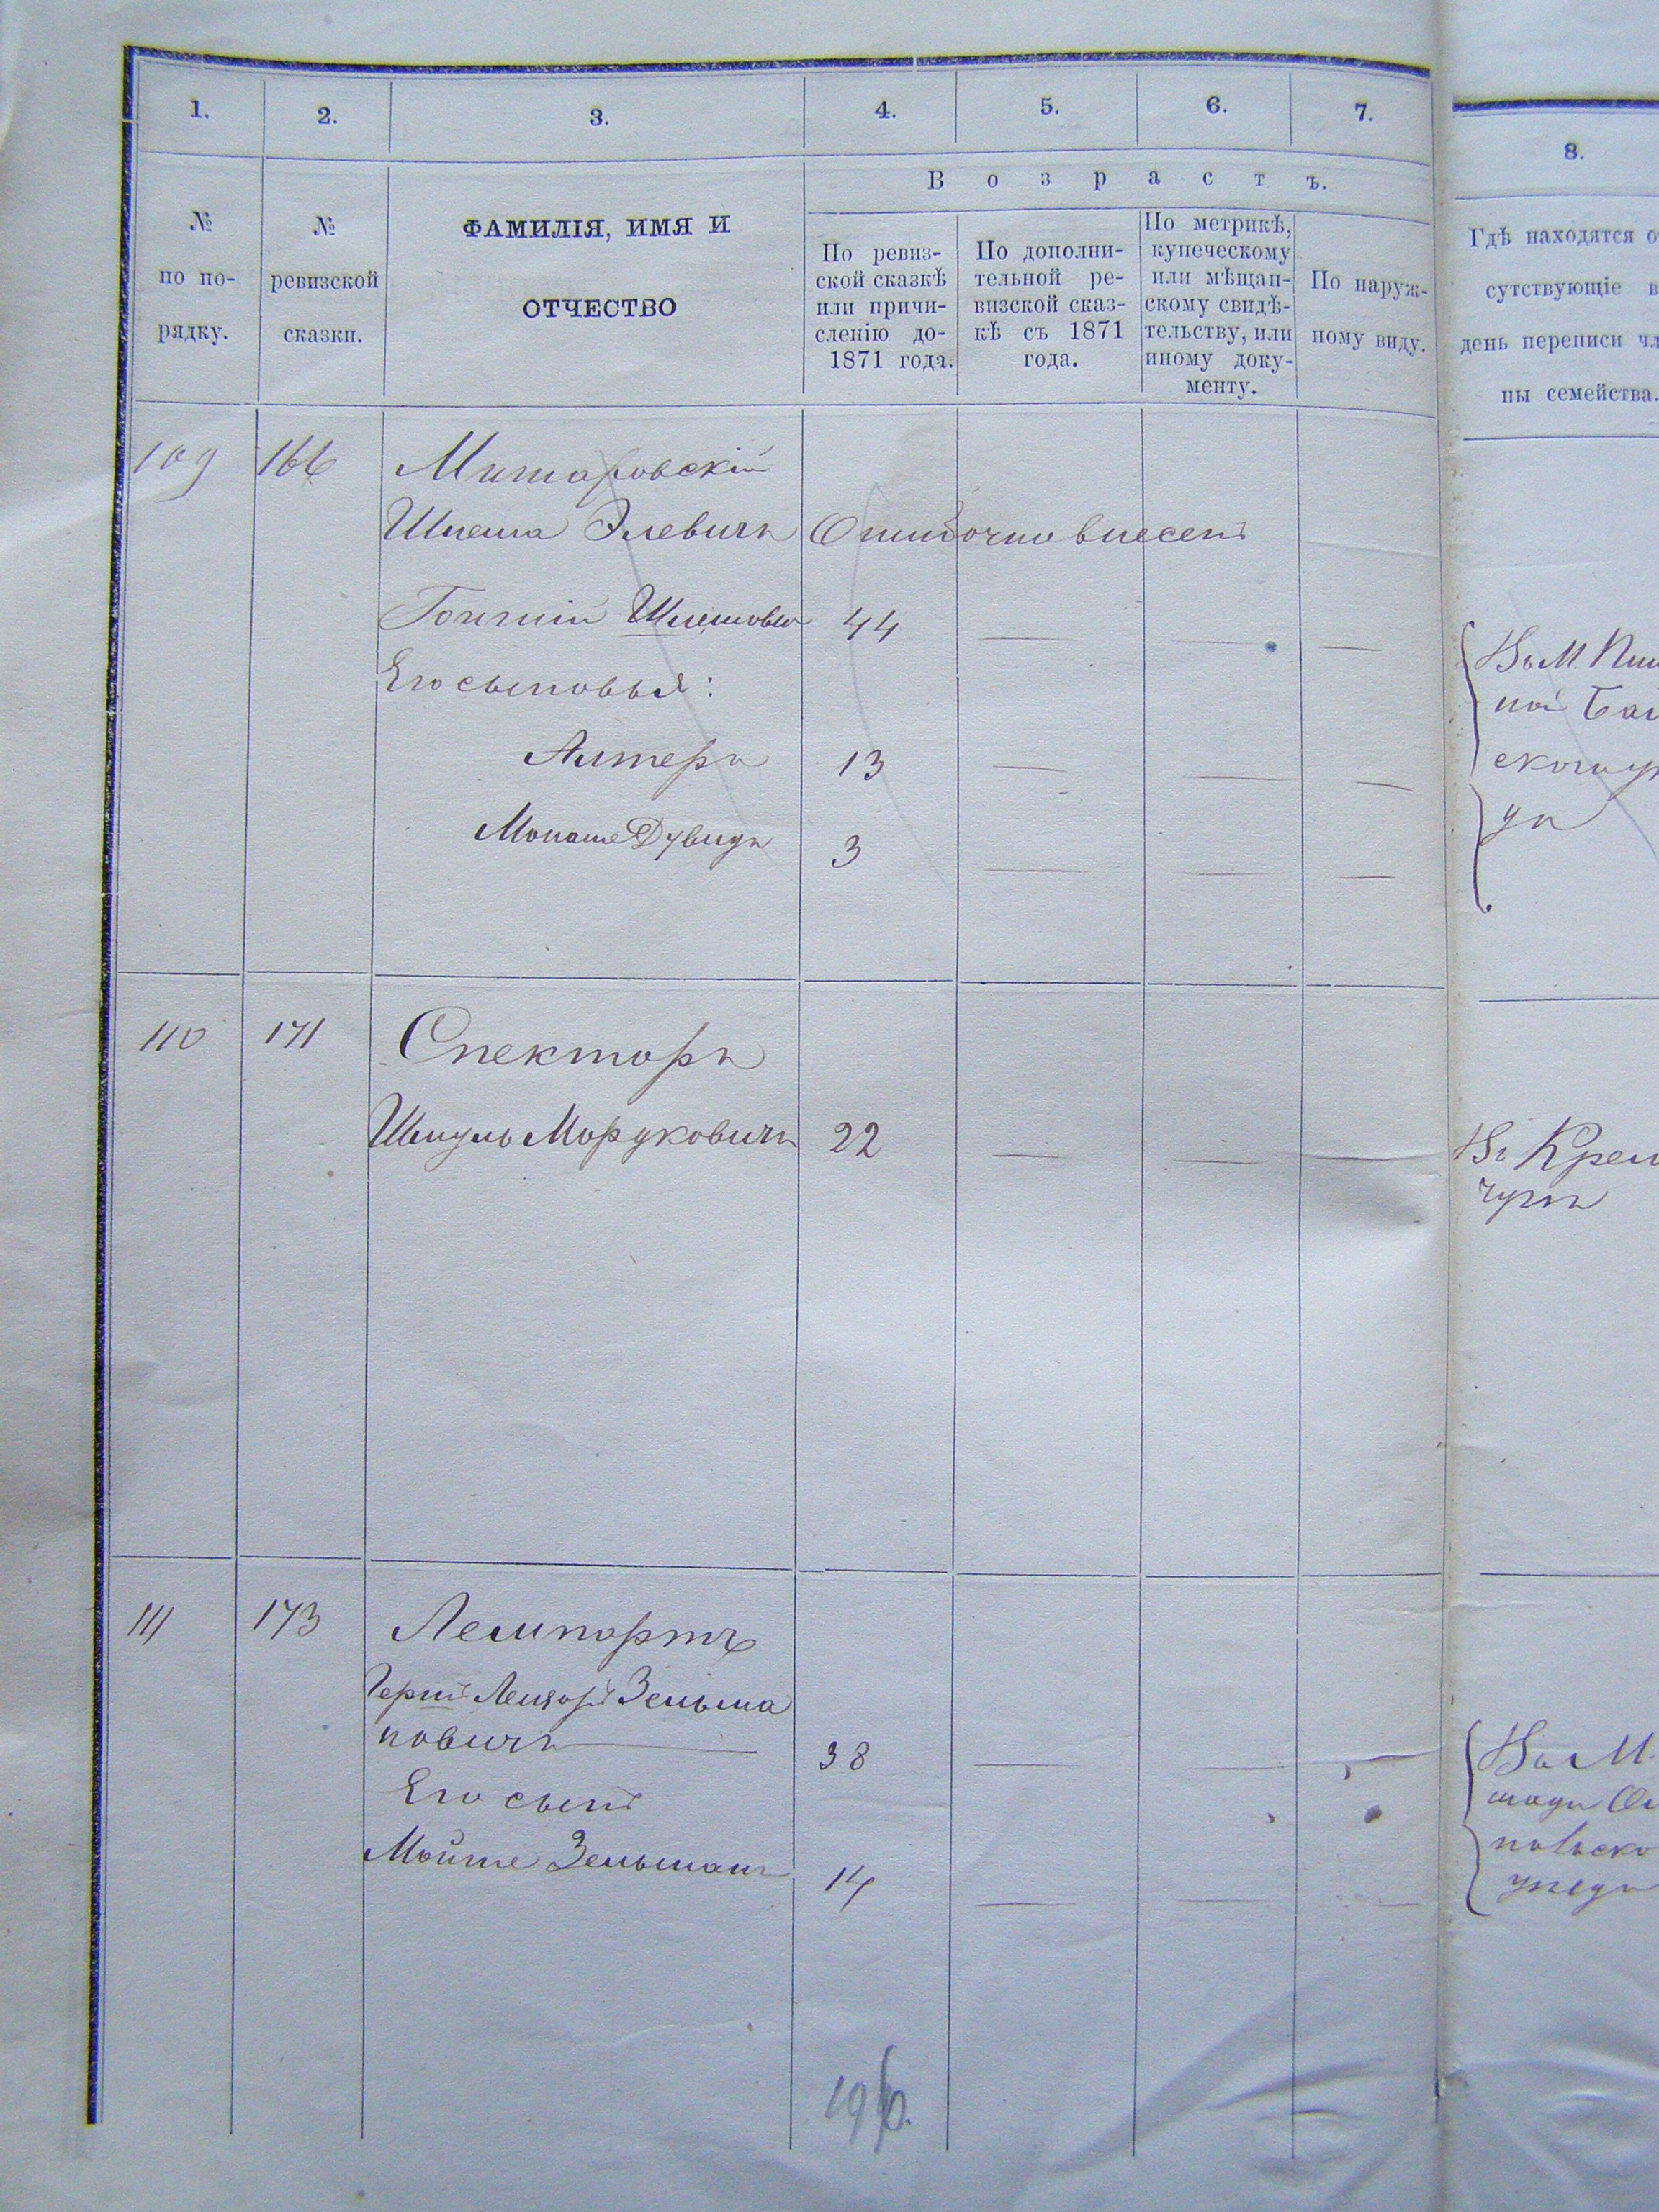 1. 2. 3. 4. 5. 6. 7. 8.
В о з р а с т ъ.
№ по по-рядку.
№ ревизской сказки.
ФАМИЛІЯ, ИМЯ И
ОТЧЕСТВО
По ревиз-
ской сказкѣ
или причи-
сленію до-
1871 года.
По дополни-
тельной ре-
визской сказ-
кѣ съ 1871
года.
По метрикѣ,
купеческому
или мѣщан-
скому свидѣ-
тельству, или
иному доку-
менту.
По наруж-
ному виду.
Гдѣ находятся о
сутствующіе в
день переписи чл
ны семейства.
109 166 Митаровскій
Шлема Элевичъ Ошибочно внесенъ
Шлемовъ 44
Его сыновья:
Алтеръ 13
Монаше Дувидъ 3
ной
110 171 Спекторъ
Шмуль Мордковичъ 22
Въ Крем
чугѣ
111 173 Лемпортъ
Гершъ Лейзоръ Зельма
новичъ 38
Его сынъ
Мойше Зельманъ 14
Въ М.
уѣзда